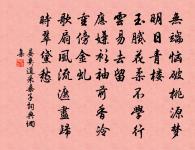 無端惱破桃源夢
明日青樓
玉膩花柔不學行
雲易去留
應嫌衫袖前香冷
重傍金虬
歌扇風流遮盡歸
時翠黛愁
晏幾道采桑子詞典網
集